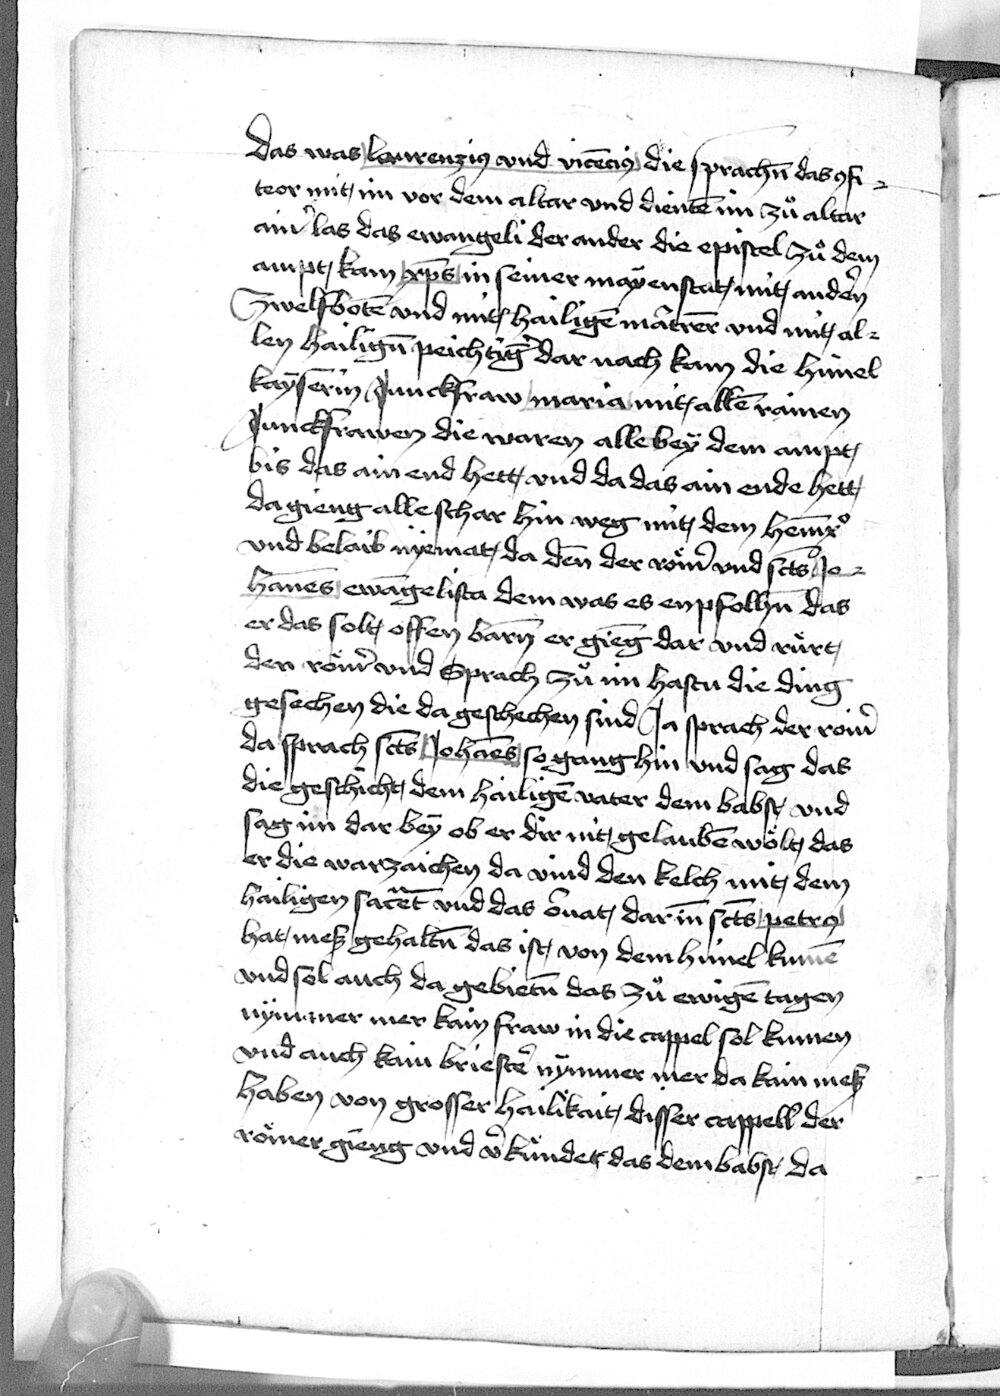 das was laurenziꝰ vnd vicēciꝰ die sprachn̄ das ꝯfi-
teor mit im vor dem altar vnd dientē im zů altar
ain̾ las das ewangeli der ander die epistel zů dem
ampt kam xp̄s in seiner mayenstat mit anden̾
Zwelfbotē vnd mit hailigē mātrer̄ vnd mit al-
len hailign̄ peichtig̾ dar nach kam die himel
kaÿserin Junckfraw maria mit allē rainen
Junckfrawen die waren alle beÿ dem ampt
bis das ain end hett vnd da das ain ende hett
da gieng alle schar hin weg mit dem hem̄rͦ
vnd belaib nyemat da den̄ der röm̾ vnd sctͦs Jo-
han̄es ewāgelista dem was es enpfolhn̄ das
er das solt offen barn̄ er giēg dar vnd rürt
den röm̾ vnd Sprach zů im hastu die ding
gesechen die da geschechen sind Ja sprach der röm̾
da sprach sct̄s Johāes so gang hin vnd sag das
die geschicht dem hailigē vater dem babst vnd
sag im dar beÿ ob er dir nit gelaubē wölt das
er die warzaichen da vind den kelch mit dem
hailigen sac̄et vnd das ōnat dar in̄ sct̄s petrꝰ
hat meß gehaltn̄ das ist von dem himel kumē
vnd sol auch da gebietn̄ das zů ewigē tagen
nÿmmer mer kain fraw in die cappel sol kumen
vnd auch kain briest̾ nÿmmer mer da kain meß
haben von grosser hailikait disser cappell der
römer gieng vnd v̾kündet das dem babst da